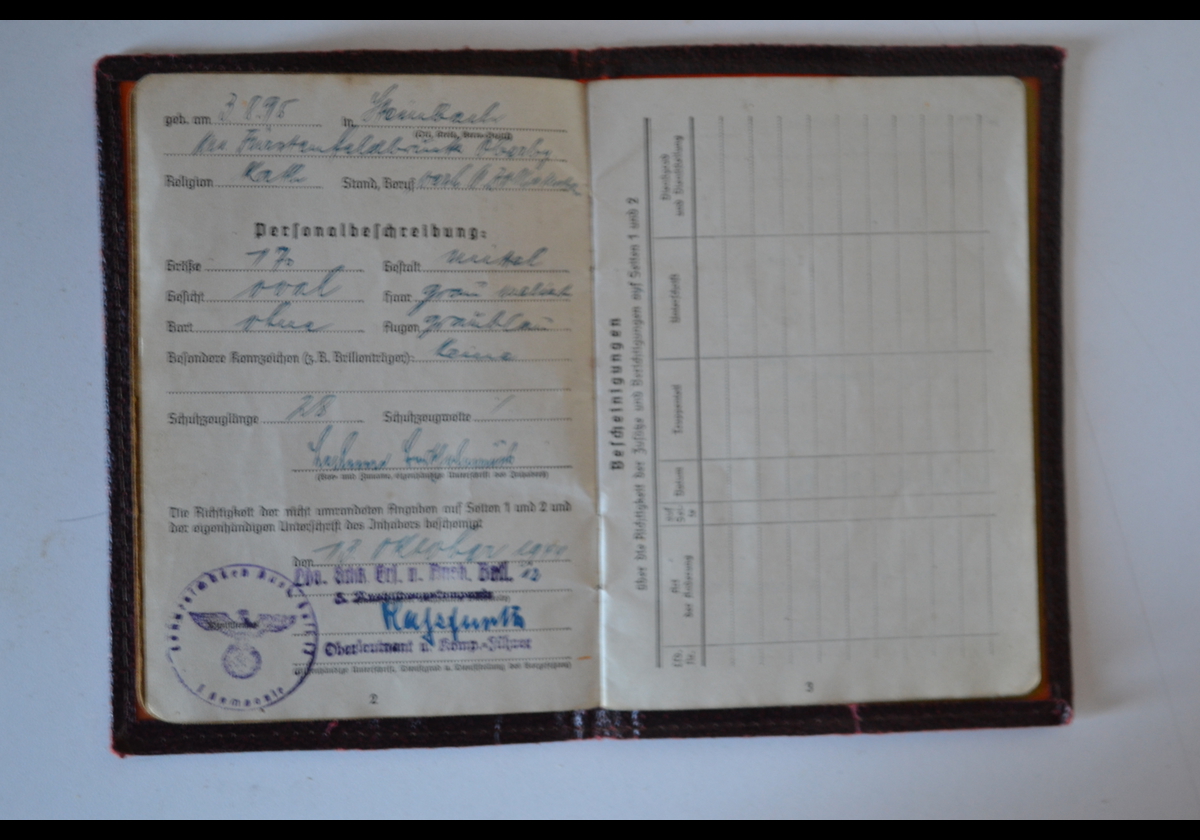 geb. am 3.8.95 in Steinbach
(Ort, Kreis, Verw.-Bezirk)
bei Fürstenfeldbruck Oberby
Religion Kath Stand, Beruf
Personalbeschreibung:
Größe 170 Gestalt mittel
Gesicht oval Haar grau meliert
Bart ohne Augen graublau
Besondere Kennzeichen (z.B. Brillenträger): keine
Schuhzeuglänge 28 Schuhzeugweite /
(Vor- und Zuname, eigenhändige Unterschrift des Inhabers)
Die Richtigkeit der nicht umrandeten Angaben auf Seiten 1 und 2 und
der eigenhändigen Unterschrift des Inhabers bescheinigt
den Oktober
Lds. Schtz. Ers. u. Ausb. Batl.
Oberleutnant u. Komp.-Führer
(Eigenhändige Unterschrift, Dienstgrad u. Dienststellung des Vorgesetzten)
2
Bescheinigungen
über die Richtigkeit der Zusätze und Berichtigungen auf Seiten 1 und 2
Lfd. Nr.
Art der Änderung
auf Seite
Datum
Truppenteil
Unterschrift
Dienstgrad und Dienststellung
3